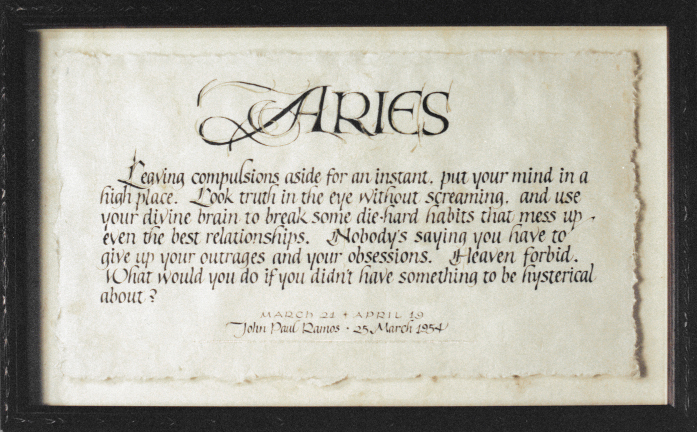 ARIES
Leaving compulsions aside for an instant, put your mind in a
high place. Look truth in the eye without screaming, and use
your divine brain to break some die-hard habits that mess up
even the best relationships. Nobody's saying you have to
give up your outrages and your obsessions. Heaven forbid.
What would you do if you didn't have something to be hysterical
about?
MARCH 21 + APRIL 19
John Paul Ramos • 25 March 1954